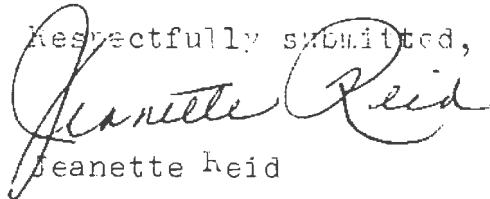 Respectfully submitted,
Jeanette Reid
Jeanette Reid